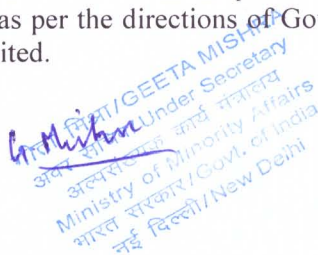 as per the directions of Gov
ited.
G. Mishra
गीता मिश्रा/GEETA MISHRA
अवर सचिव/Under Secretary
अल्पसंख्यक कार्य मंत्रालय
Ministry of Minority Affairs
भारत सरकार/Govt. of India
नई दिल्ली/New Delhi